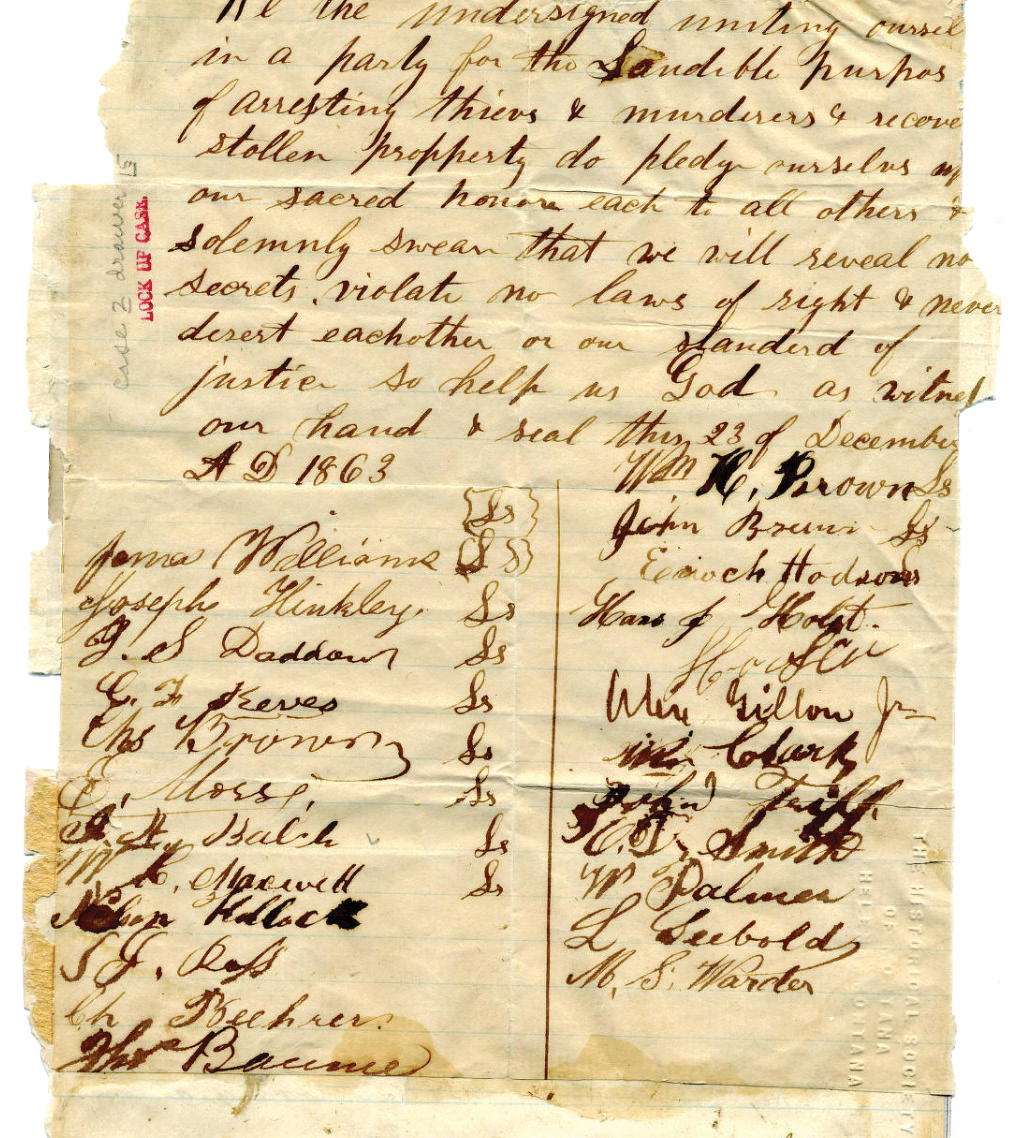 We the undersigned uniting oursel
in a party for the Laudible purpos
of arresting thievs & murderers & recove
stollen propperty do pledge ourselvs up
our sacred honors each to all others &
solemnly swear that we will reveal no
secrets, violate no laws of right & never
desert eachother or our standerd of
justice so help us God as witnes
our hand & seal this 23 of December
A D 1863
{Ls}
James Williams {Ls}
Joseph Hinkley Ls
J. S Daddow Ls
C. F Keeves Ls
Chs Brown Ls
E. Morse, Ls
J. H, Balch Ls
W C. Maxwell Ls
Nelson Kellock
S J. Ross
Ch Beehrer.
Thos Baume
Wm H, Brown Ls
John Brown Ls
Enoch Hodson Ls
Hans J Holst.
Alex Gillon Jr
Clark
Triff
C. D. Smith
W Palmer
L Seebold
M, S. Warder
case 2 drawer 15
LOCK UP CASE.
THE HISTORICAL SOCIETY
OF MONTANA
HELENA
MONTANA